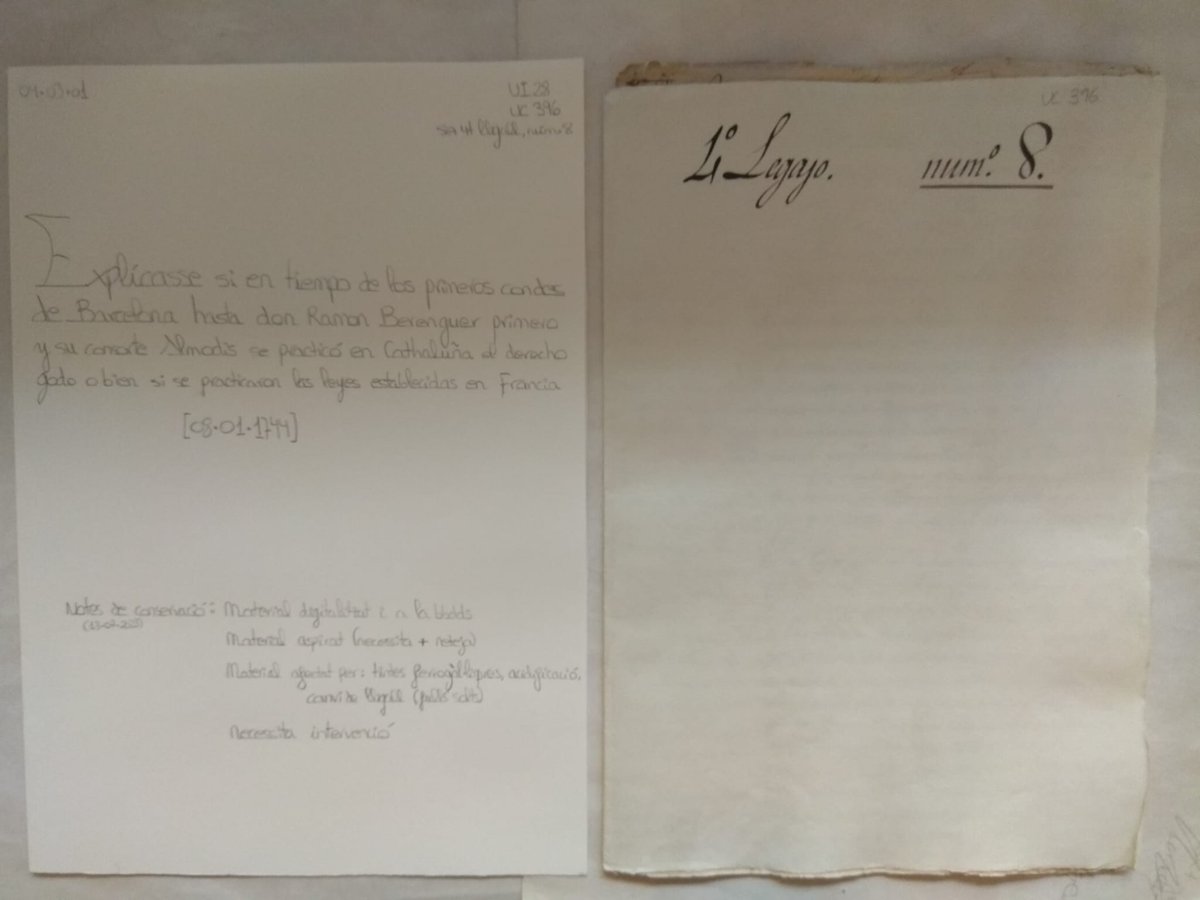 04.03.01
UI 28
UC 396
lligall, núm 8
Explicasse si en tiempo de los primeros condes
de Barcelona hasta don Ramon Berenguer primero
y su consorte Almodis se practicó en Cathaluña el derecho
godo o bien si se practicaron las leyes establecidas en Francia
[08.01.1744]
Notes de conservació: Material digitalitzat i a la
Material aspirat (necessita + neteja)
Material afectat per: tintes ferrogàl·liques, acidificació,
lligall
Necessita intervenció
UC 396
4º Legajo. num.º 8.